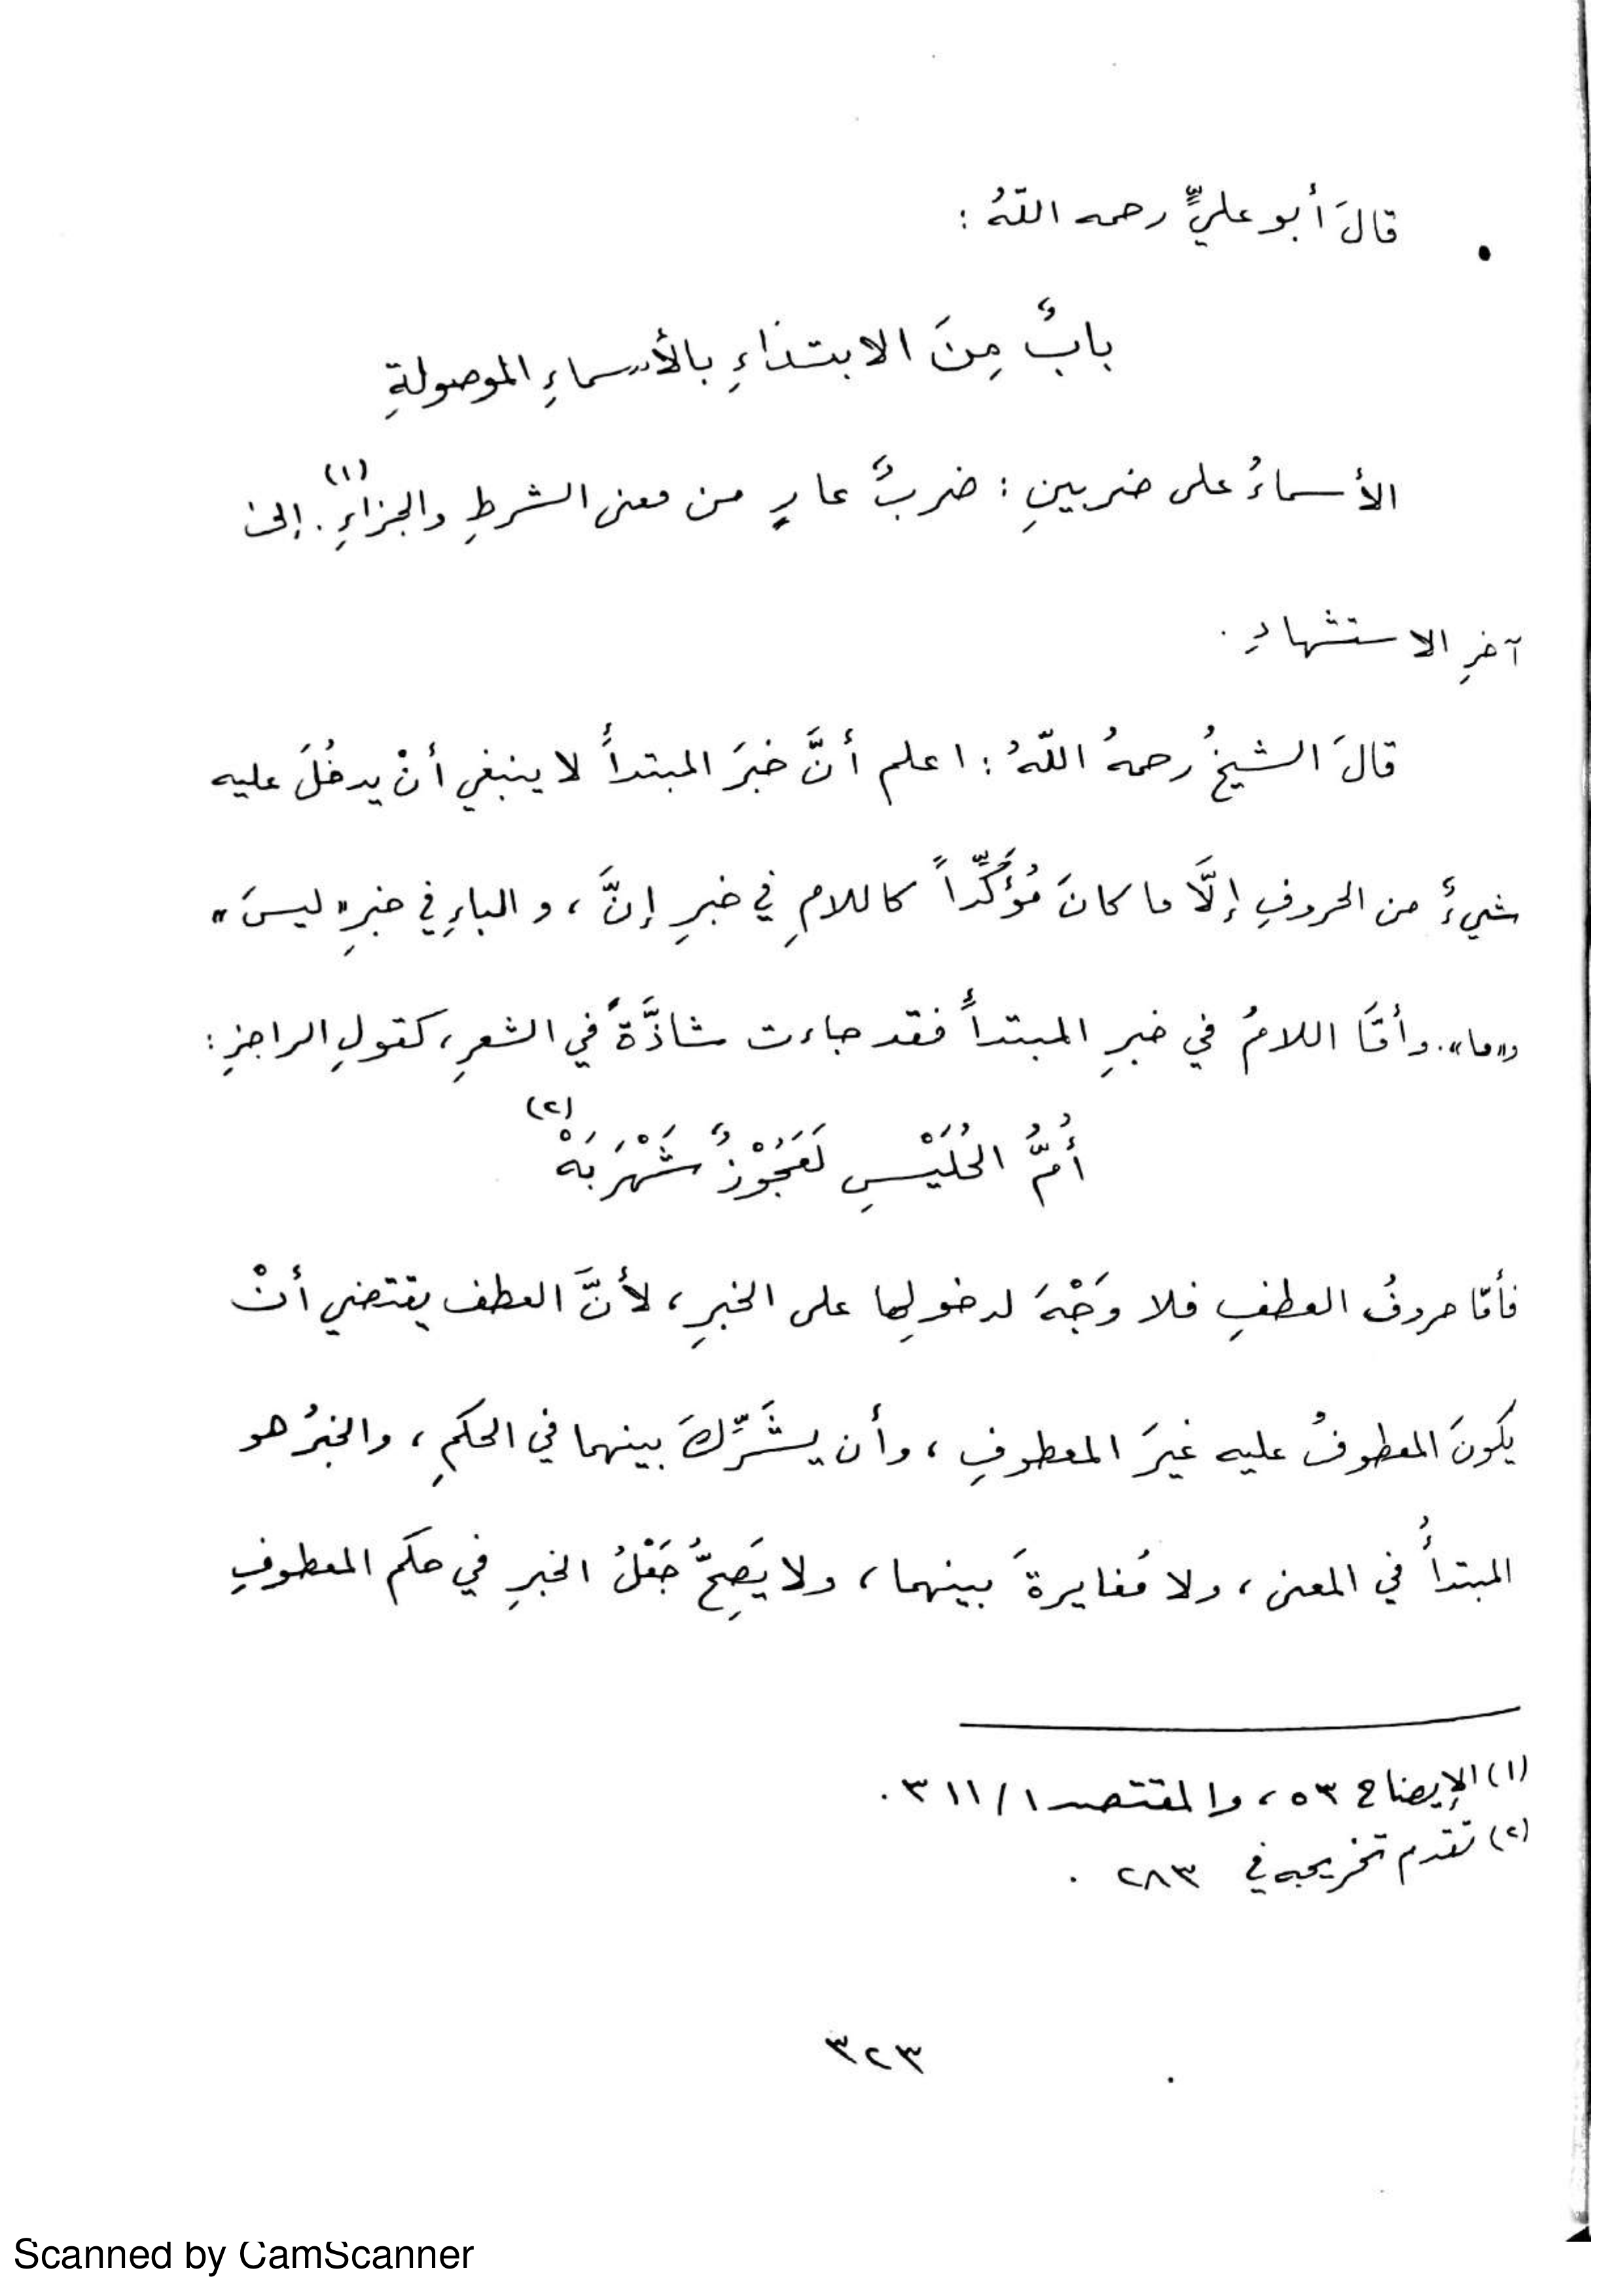 قالَ أبو عليٍّ رحمه اللّهُ :
بابٌ مِنَ الابتداءِ بالأسماءِ الموصولةِ
الأسماءُ على ضربينِ : ضربٌ عارٍ من معنى الشرطِ والجزاءِ(١). إلى
آخرِ الاستشهادِ .
قالَ الشيخُ رحمهُ اللّهُ : اعلم أنَّ خبرَ المبتدأَ لا ينبغي أنْ يدخُلَ عليه
شيءٌ من الحروفِ إلَّا ما كانَ مُؤَكِّداً كاللامِ في خبرِ إنَّ ، والباءِ في خبرِ «ليسَ»
و«ما». وأمَّا اللامُ في خبرِ المبتدأً فقد جاءت شاذَّةً في الشعرِ، كقولِ الراجزِ :
أُمُّ الحُلَيْسِ لَعَجُوْزٌ شَهْرَبَهْ(٢)
فأمّا حروفُ العطفِ فلا وَجْهَ لدخولِها على الخبرِ ، لأنَّ العطف يقتضي أنْ
يكونَ المعطوفُ عليه غيرَ المعطوفِ ، وأن يشَرِّكَ بينهما في الحكمِ ، والخبرُ هو
المبتدأُ في المعنى ، ولا مُغايرةَ بينهما ، ولا يَصِحُّ جَعْلُ الخبرِ في حكم المعطوفِ
(١) الإيضاح ٥٣ ، والمقتصد ١ / ٣١١ .
(٢) تقدم تخريجه في ٢٨٣ .
٣٢٣
Scanned by CamScanner